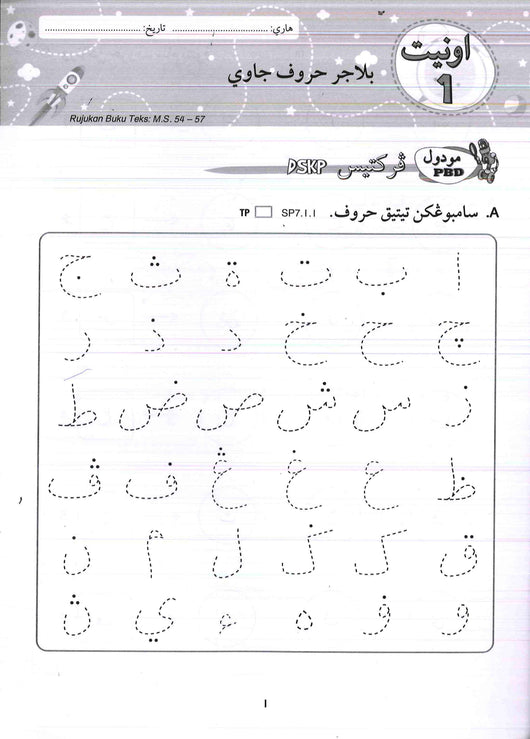 هاري: ........................ تاريخ: ........................
اونيت
1
بلاجر حروف جاوي
Rujukan Buku Teks: M.S. 54 – 57
مودول
PBD
ڤركتيس DSKP
A. سامبوڠكن تيتيق حروف. SP7.1.1 TP
ا ب ت ة ث ج
چ ح خ د ذ ر
ز س ش ص ض ط
ظ ع غ ڠ ف ڤ
ق ک ݢ ل م ن
و ۏ ه ء ي ڽ
1